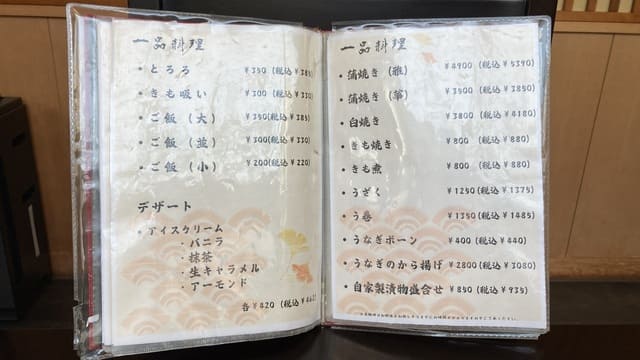 一品料理
・とろろ ¥350(税込¥385)
・きも吸い ¥300(税込¥330)
・ご飯(大) ¥350(税込¥385)
・ご飯(並) ¥300(税込¥330)
・ご飯(小) ¥200(税込¥220)
デザート
・アイスクリーム
・バニラ
・抹茶
・生キャラメル
・アーモンド
各¥420(税込¥462)
一品料理
・蒲焼き(雅) ¥4900(税込¥5390)
・蒲焼き(華) ¥3500(税込¥3850)
・白焼き ¥3800(税込¥4180)
・きも焼き ¥800(税込¥880)
・きも煮 ¥800(税込¥880)
・うざく ¥1250(税込¥1375)
・う巻 ¥1350(税込¥1485)
・うなぎボーン ¥400(税込¥440)
・うなぎのから揚げ ¥2800(税込¥3080)
・自家製漬物盛合せ ¥850(税込¥935)